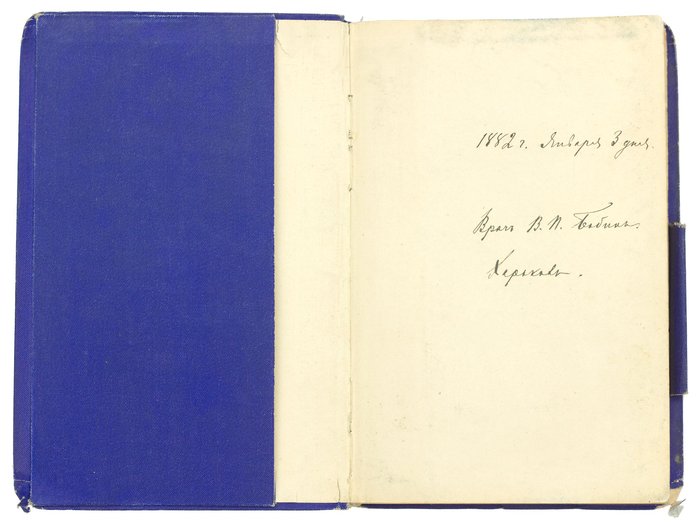 1882 г. Января 3 дня.
Врачъ В. П. Бобинъ.
Харьковъ.